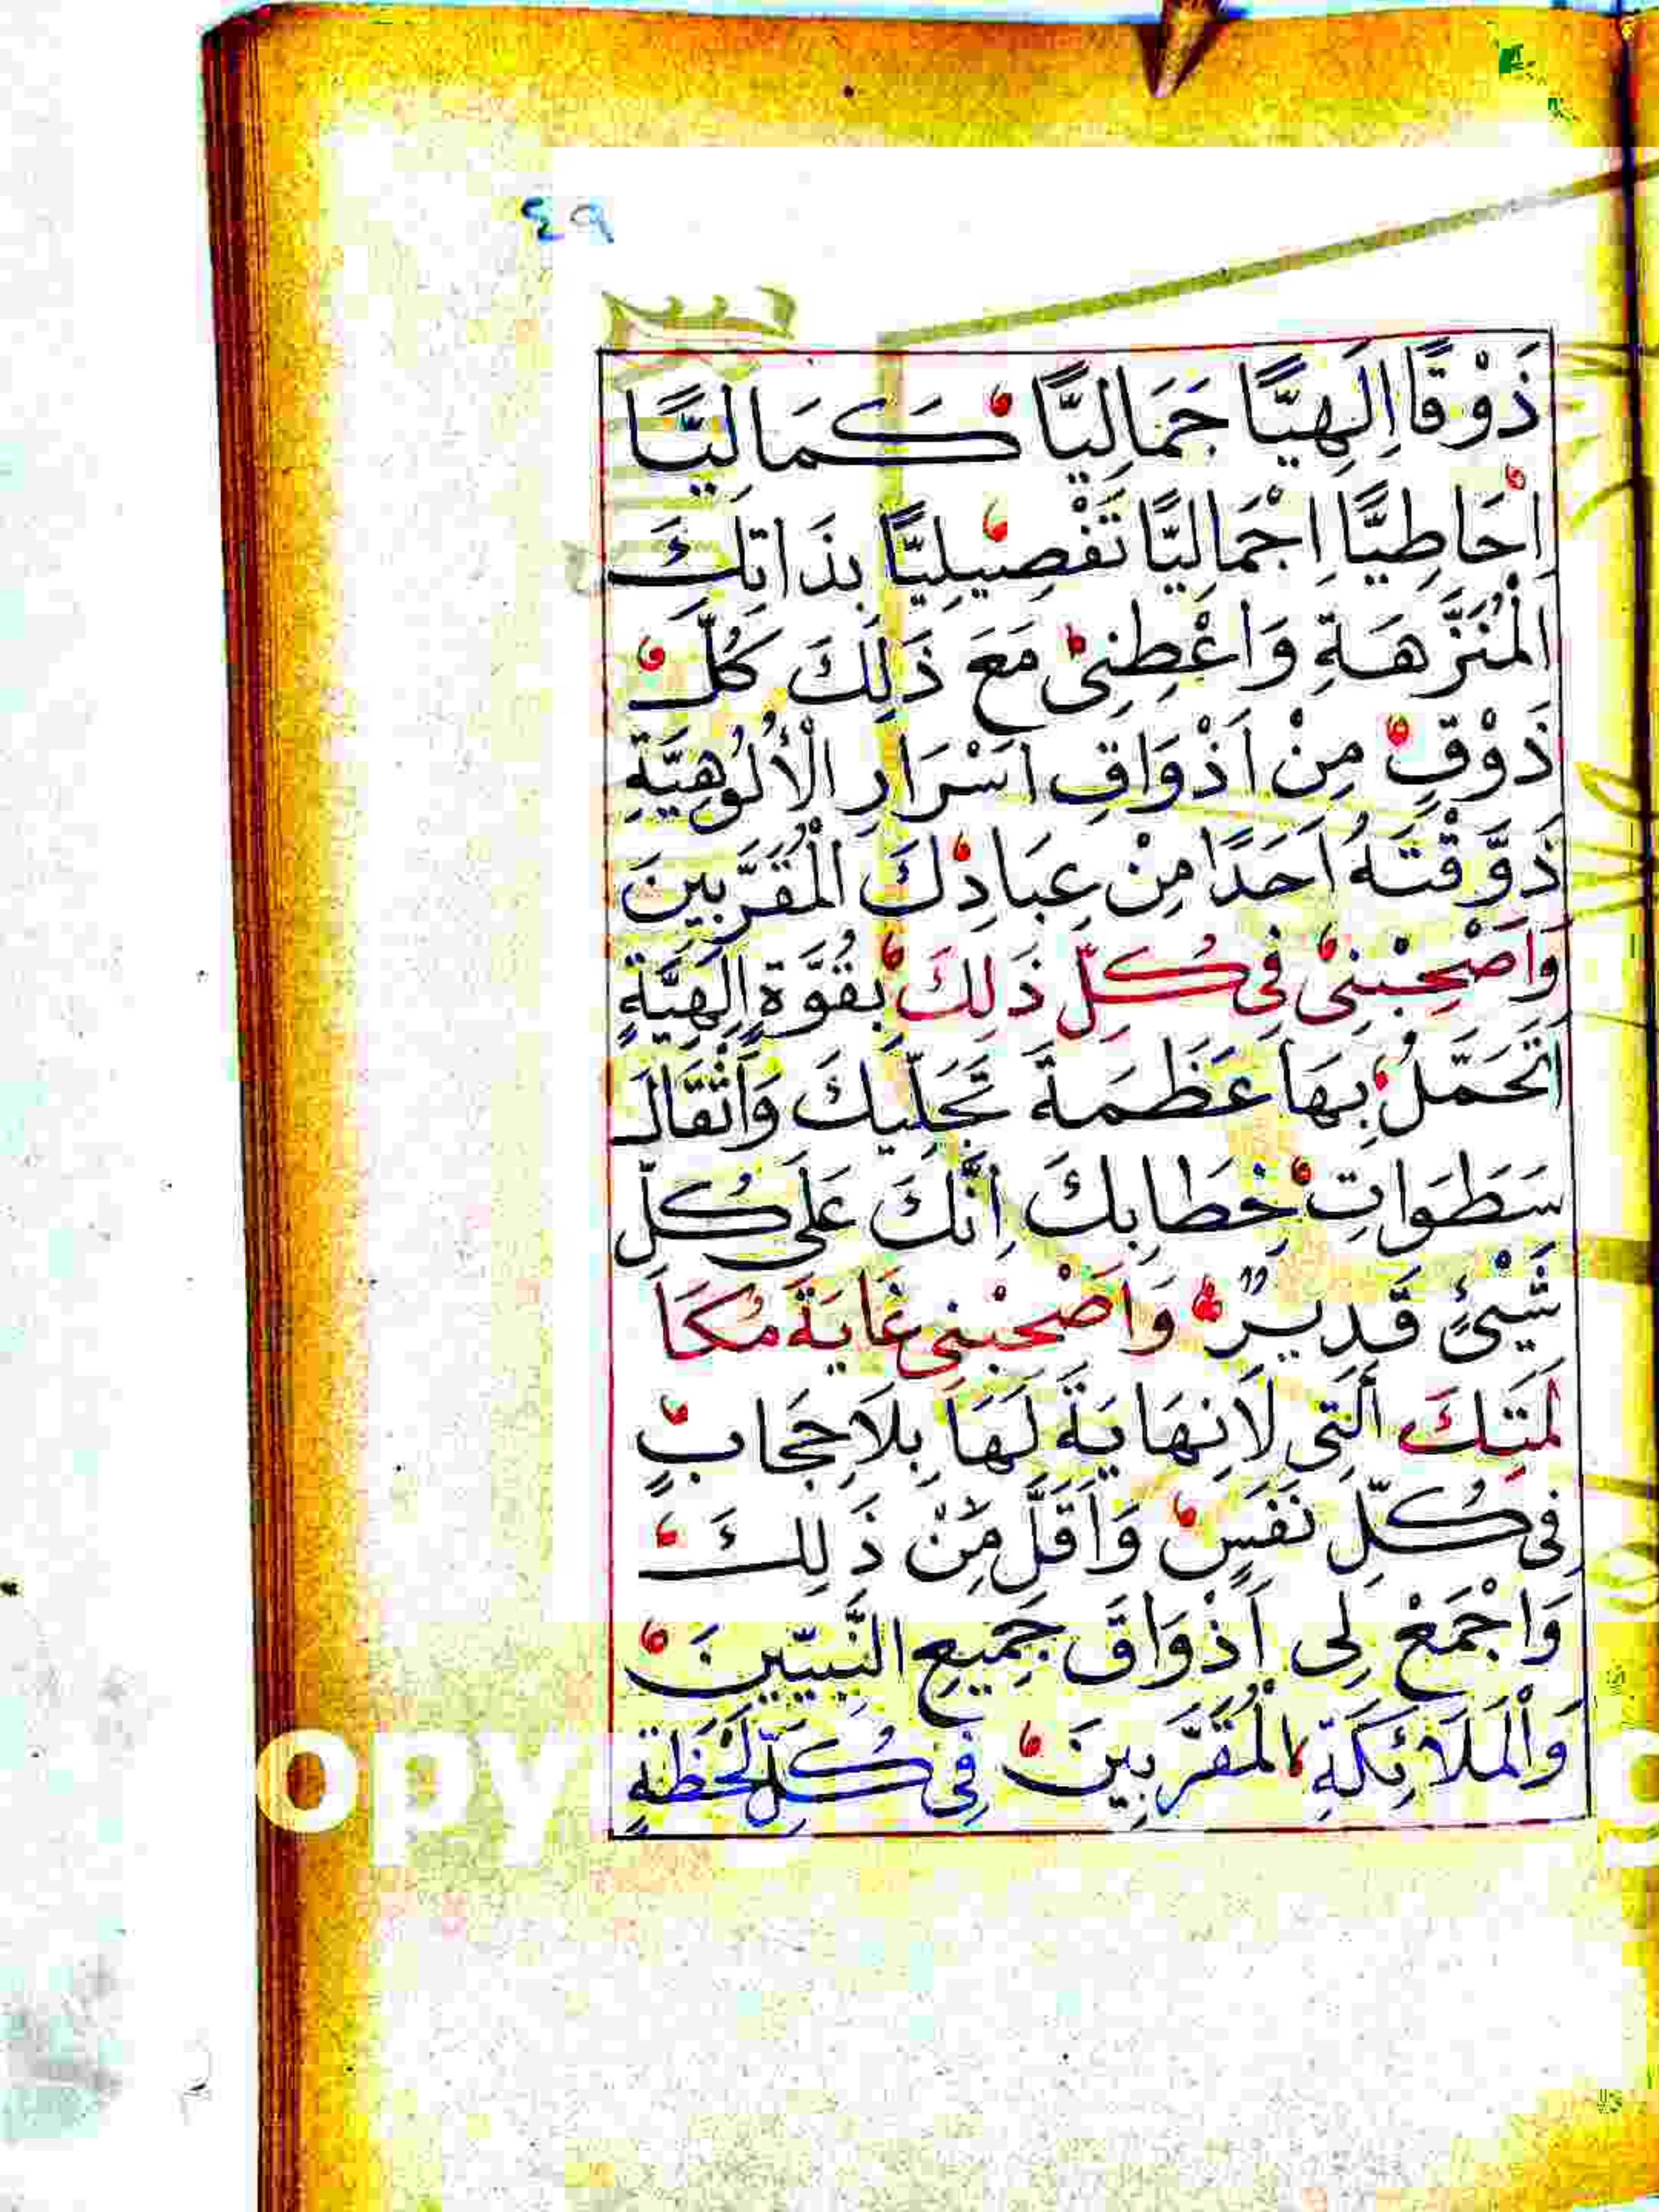 ٤٩
ذَوْقًا اِلَهِيًّا جَمَالِيًّا كَمَالِيًّا
اِحَاطِيًّا اِجْمَالِيًّا تَفْصِيلِيًّا بِذَاتِكَ
الْمُنَزَّهَةِ وَاعْطِنِي مَعَ ذَلِكَ كُلَّ
ذَوْقٍ مِنْ اَذْوَاقِ اَسْرَارِ الْأُلُوهِيَّةِ
ذَوَّقْتَهُ اَحَدًا مِنْ عِبَادِكَ الْمُقَرَّبِينَ
وَاَصْحِبْنِي فِي كُلِّ ذَلِكَ بِقُوَّةٍ اِلَهِيَّةٍ
اَتَحَمَّلُ بِهَا عَظَمَةَ تَجَلِّيكَ وَاَثْقَالَ
سَطَوَاتِ خِطَابِكَ اِنَّكَ عَلَى كُلِّ
شَيْئٍ قَدِيرٌ وَاَصْحِبْنِي غَايَةَ مُكَا
لَمَتِكَ اَلَّتِي لَا نِهَايَةَ لَهَا بِلَا حِجَابٍ
فِي كُلِّ نَفَسٍ وَاَقَلَّ مِنْ ذَلِكَ
وَاجْمَعْ لِي اَذْوَاقَ جَمِيعِ النَّبِيِّينَ
وَالْمَلَائِكَةِ الْمُقَرَّبِينَ فِي كُلِّ لَحْظَةٍ
OPY